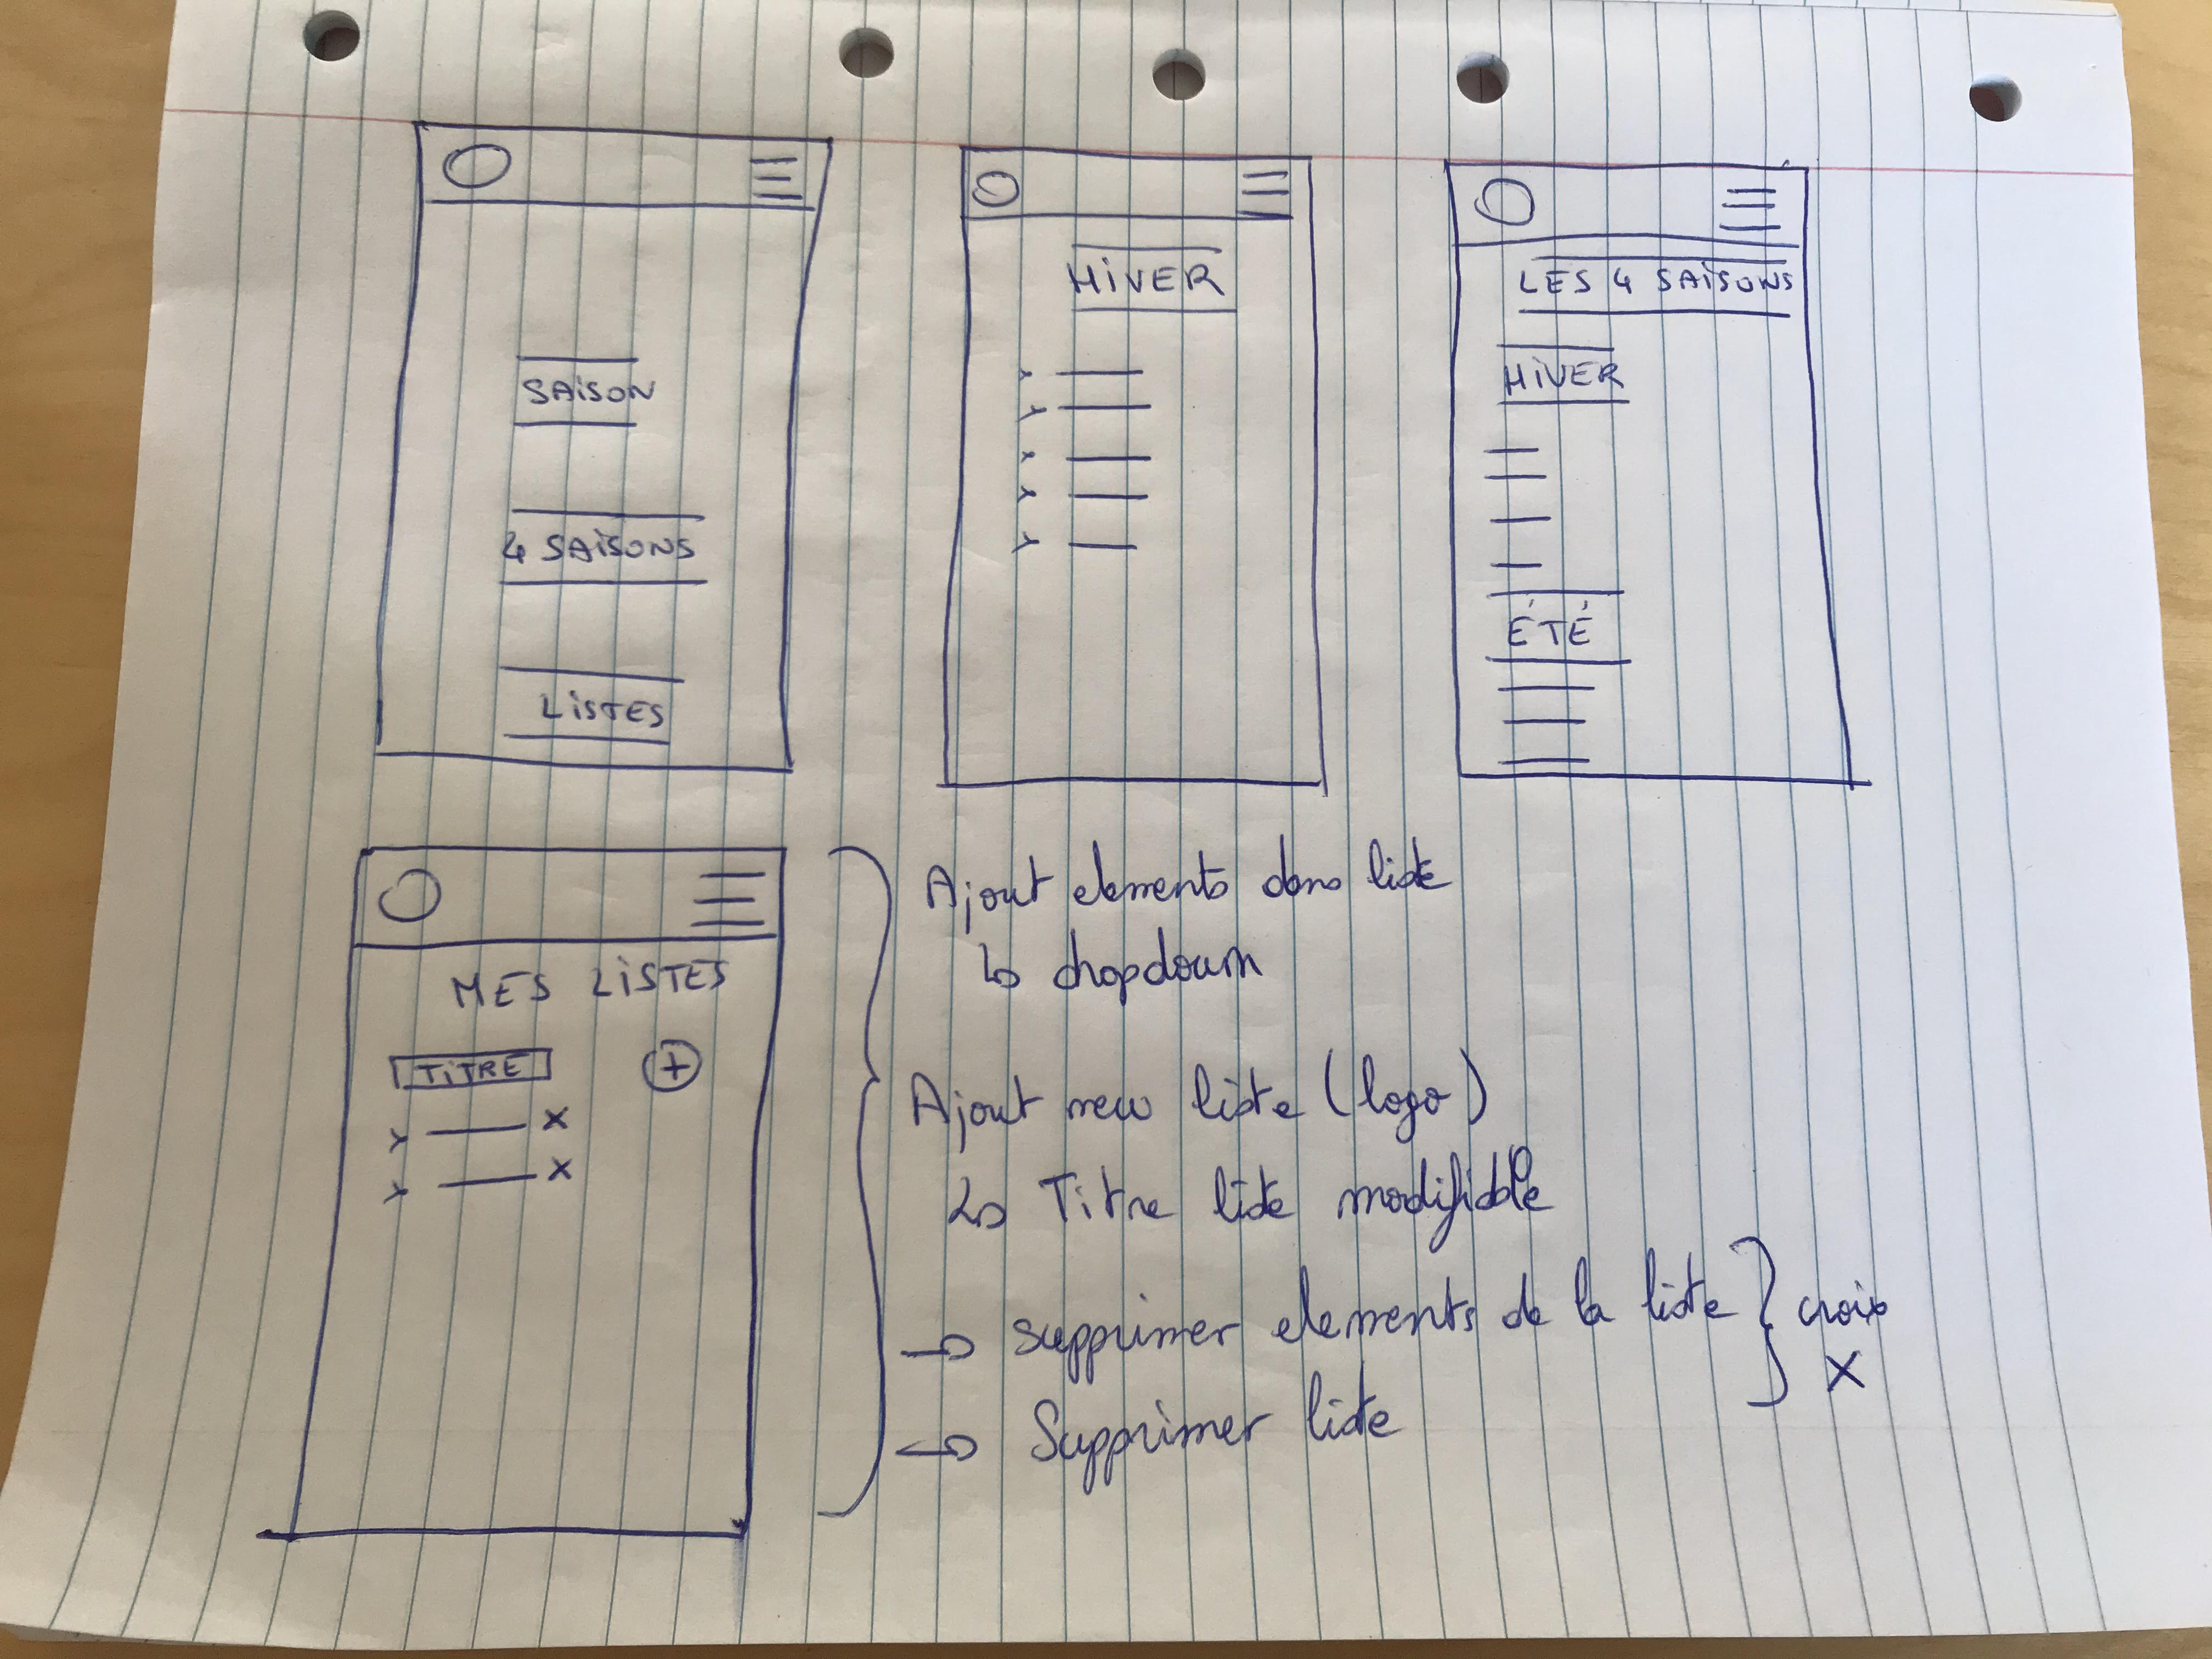 SAiSON
4 SAiSONS
LiSTES
HiVER
LES 4 SAiSONS
HiVER
ÉTÉ
MES LiSTES
TiTRE
+
x
x
Ajout elements dans liste
↳ dropdown
Ajout new liste (logo)
↳ Titre liste modifiable
→ supprimer elements de la liste } croix
X
→ Supprimer liste